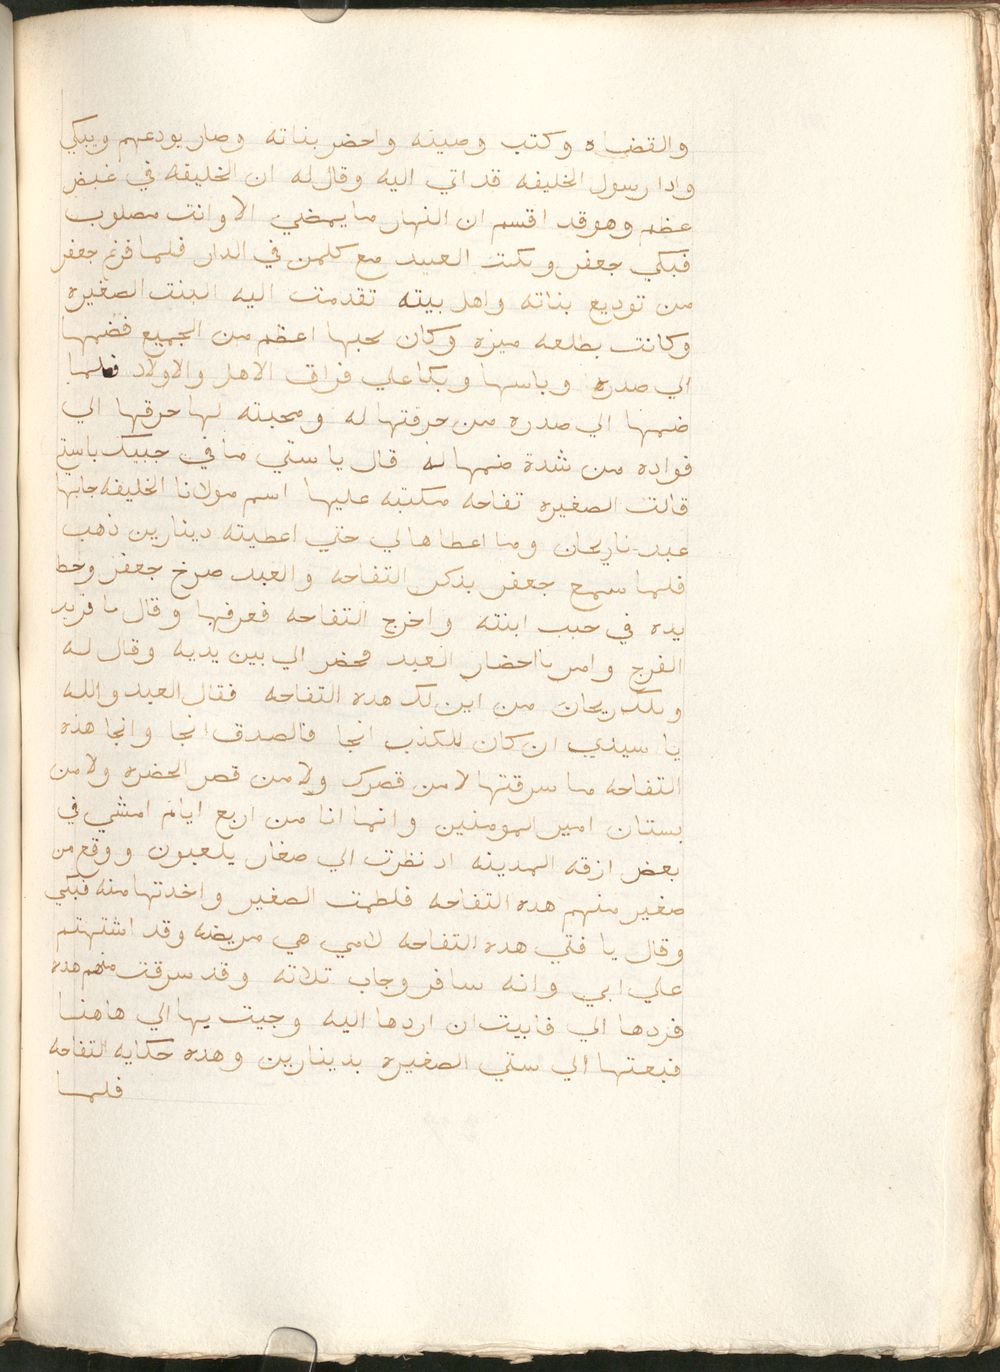 والقضاه وكتب وصيته واحضر بناته وصار يودعهم ويبكي
وادا رسول الخليفه قد اتي اليه وقال له ان الخليفه في غيض
عظم وهو قد اقسم ان النهار ما يمضي الا وانت مصلوب
فبكي جعفر وبكت العبيد مع كلمن في الدار فلما فرغ جعفر
من توديع بناته واهل بيته تقدمت اليه البنت الصغيره
وكانت بطلعه ميزه وكان يحبها اعظم من الجميع فضمها
الي صدره وباسها وبكا علي فراق الاهل والاولاد فلما
ضمها الي صدره من حرقتها له ومحبته لها حرقها الي
فواده من شدة ضمها له قال يا ستي ما في جيبك يا ستي
قالت الصغيره تفاحه مكتبه عليها اسم مولانا الخليفه جابها
عبدنا ريحان وما اعطاها لي حتي اعطيته دينارين ذهب
فلما سمع جعفر بذكر التفاحه والعبد صرخ جعفر وحط
يده في جيب ابنته واخرج التفاحه فعرفها وقال ما قريب
الفرج وامر بااحضار العبد فحضر الي بين يديه وقال له
ويلك ريحان من اين لك هده التفاحه فقال العبد والله
يا سيدي ان كان للكذب انجا فالصدق انجا وانجا هذه
التفاحه ما سرقتها لا من قصرك ولا من قصر الحضره ولا من
بستان امير المومنين وانما انا من اربع ايام امشي في
بعض ازقه المدينه اد نظرت الي صغار يلعبون ووقع من
صغير منهم هده التفاحه فلطمت الصغير واخدتها منه فبكي
وقال يا فتي هده التفاحه لامي هي مريضه وقد اشتهتم
علي ابي وانه سافر وجاب تلاته وقد سرقت منهم هده
فردها الي فابيت ان اردها اليه وجيت بها الي هاهنا
فبعتها الي ستي الصغيره بدينارين وهده حكايه التفاحه
فلما